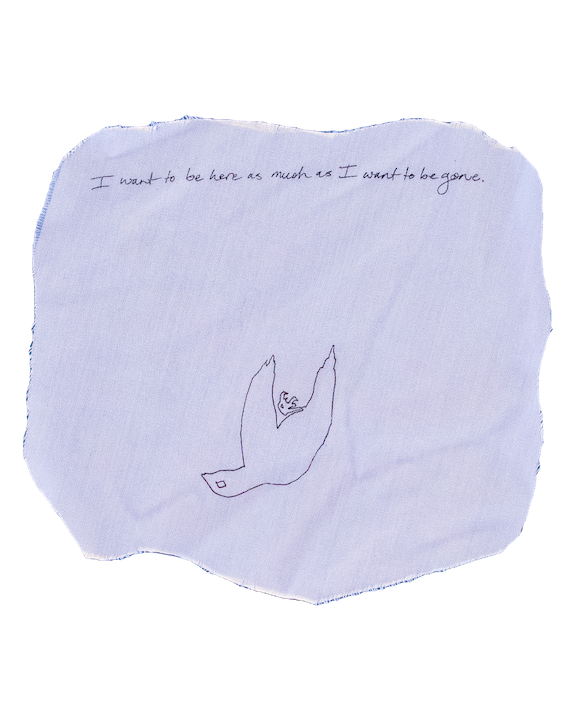 I want to be here as much as I want to be gone.